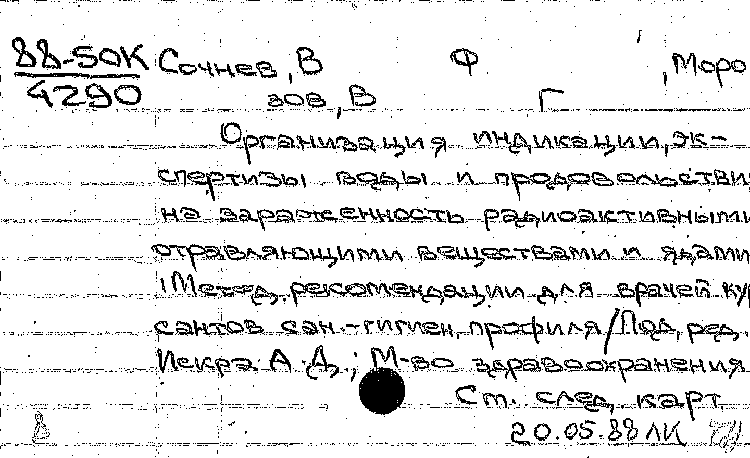 88-50К Сочнев, В Ф , Моро
4290 зов, В Г
Организация индикации, эк-
спертизы воды и продовольстви
на зараженность радиоактивными
отравляющими веществами и ядами
: Метод. рекомендации для врачей кур
сантов сан.-гигиен. профиля / Под. ред.
Искра А. Д.; М-во здравоохранения
См. след. карт
20.05.88 ЛК